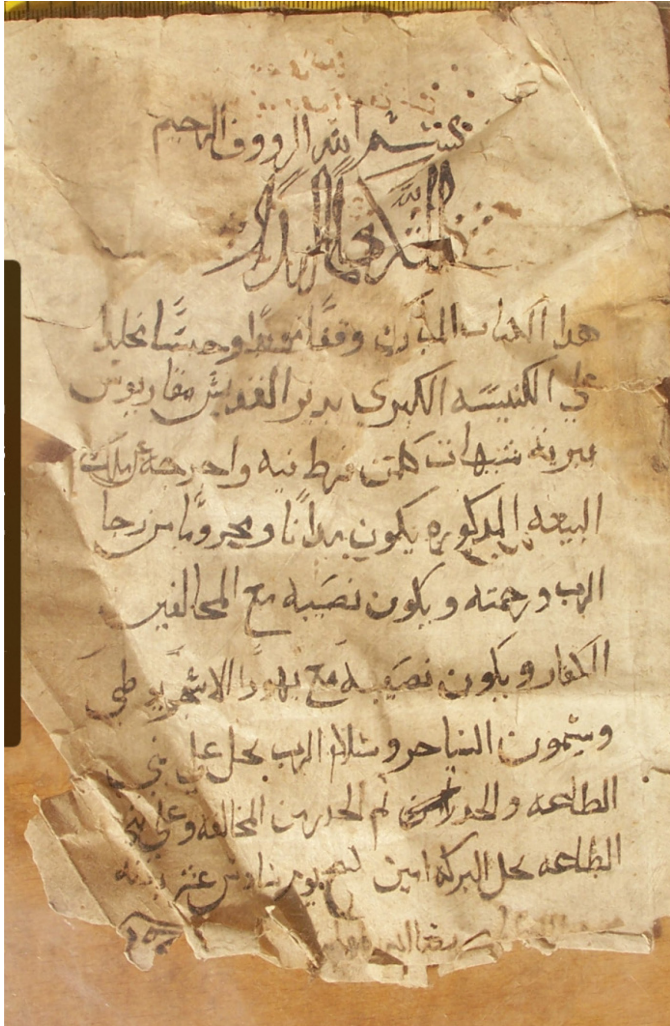 بسم الله الرووف الرحيم
هدا الكتاب المبارك وقفًا موبدًا وحبسًا مخلدا
علي الكنيسه الكبري بدير القديس مقاريوس
ببرية شيهات كلمن فرط فيه واخرجه عن
البيعه المدكوره يكون مدانًا ومحرومًا من رجا
الرب ورحمته ويكون نصيبه مع المخالفين
الكفار ويكون نصيبه مع يهودا الاسخريوطي
وسيمون الساحر وسلام الرب يحل علي بني
الطاعه والحدر ثم الحدر من المخالفه وعلي بني
الطاعه تحل البركه امين